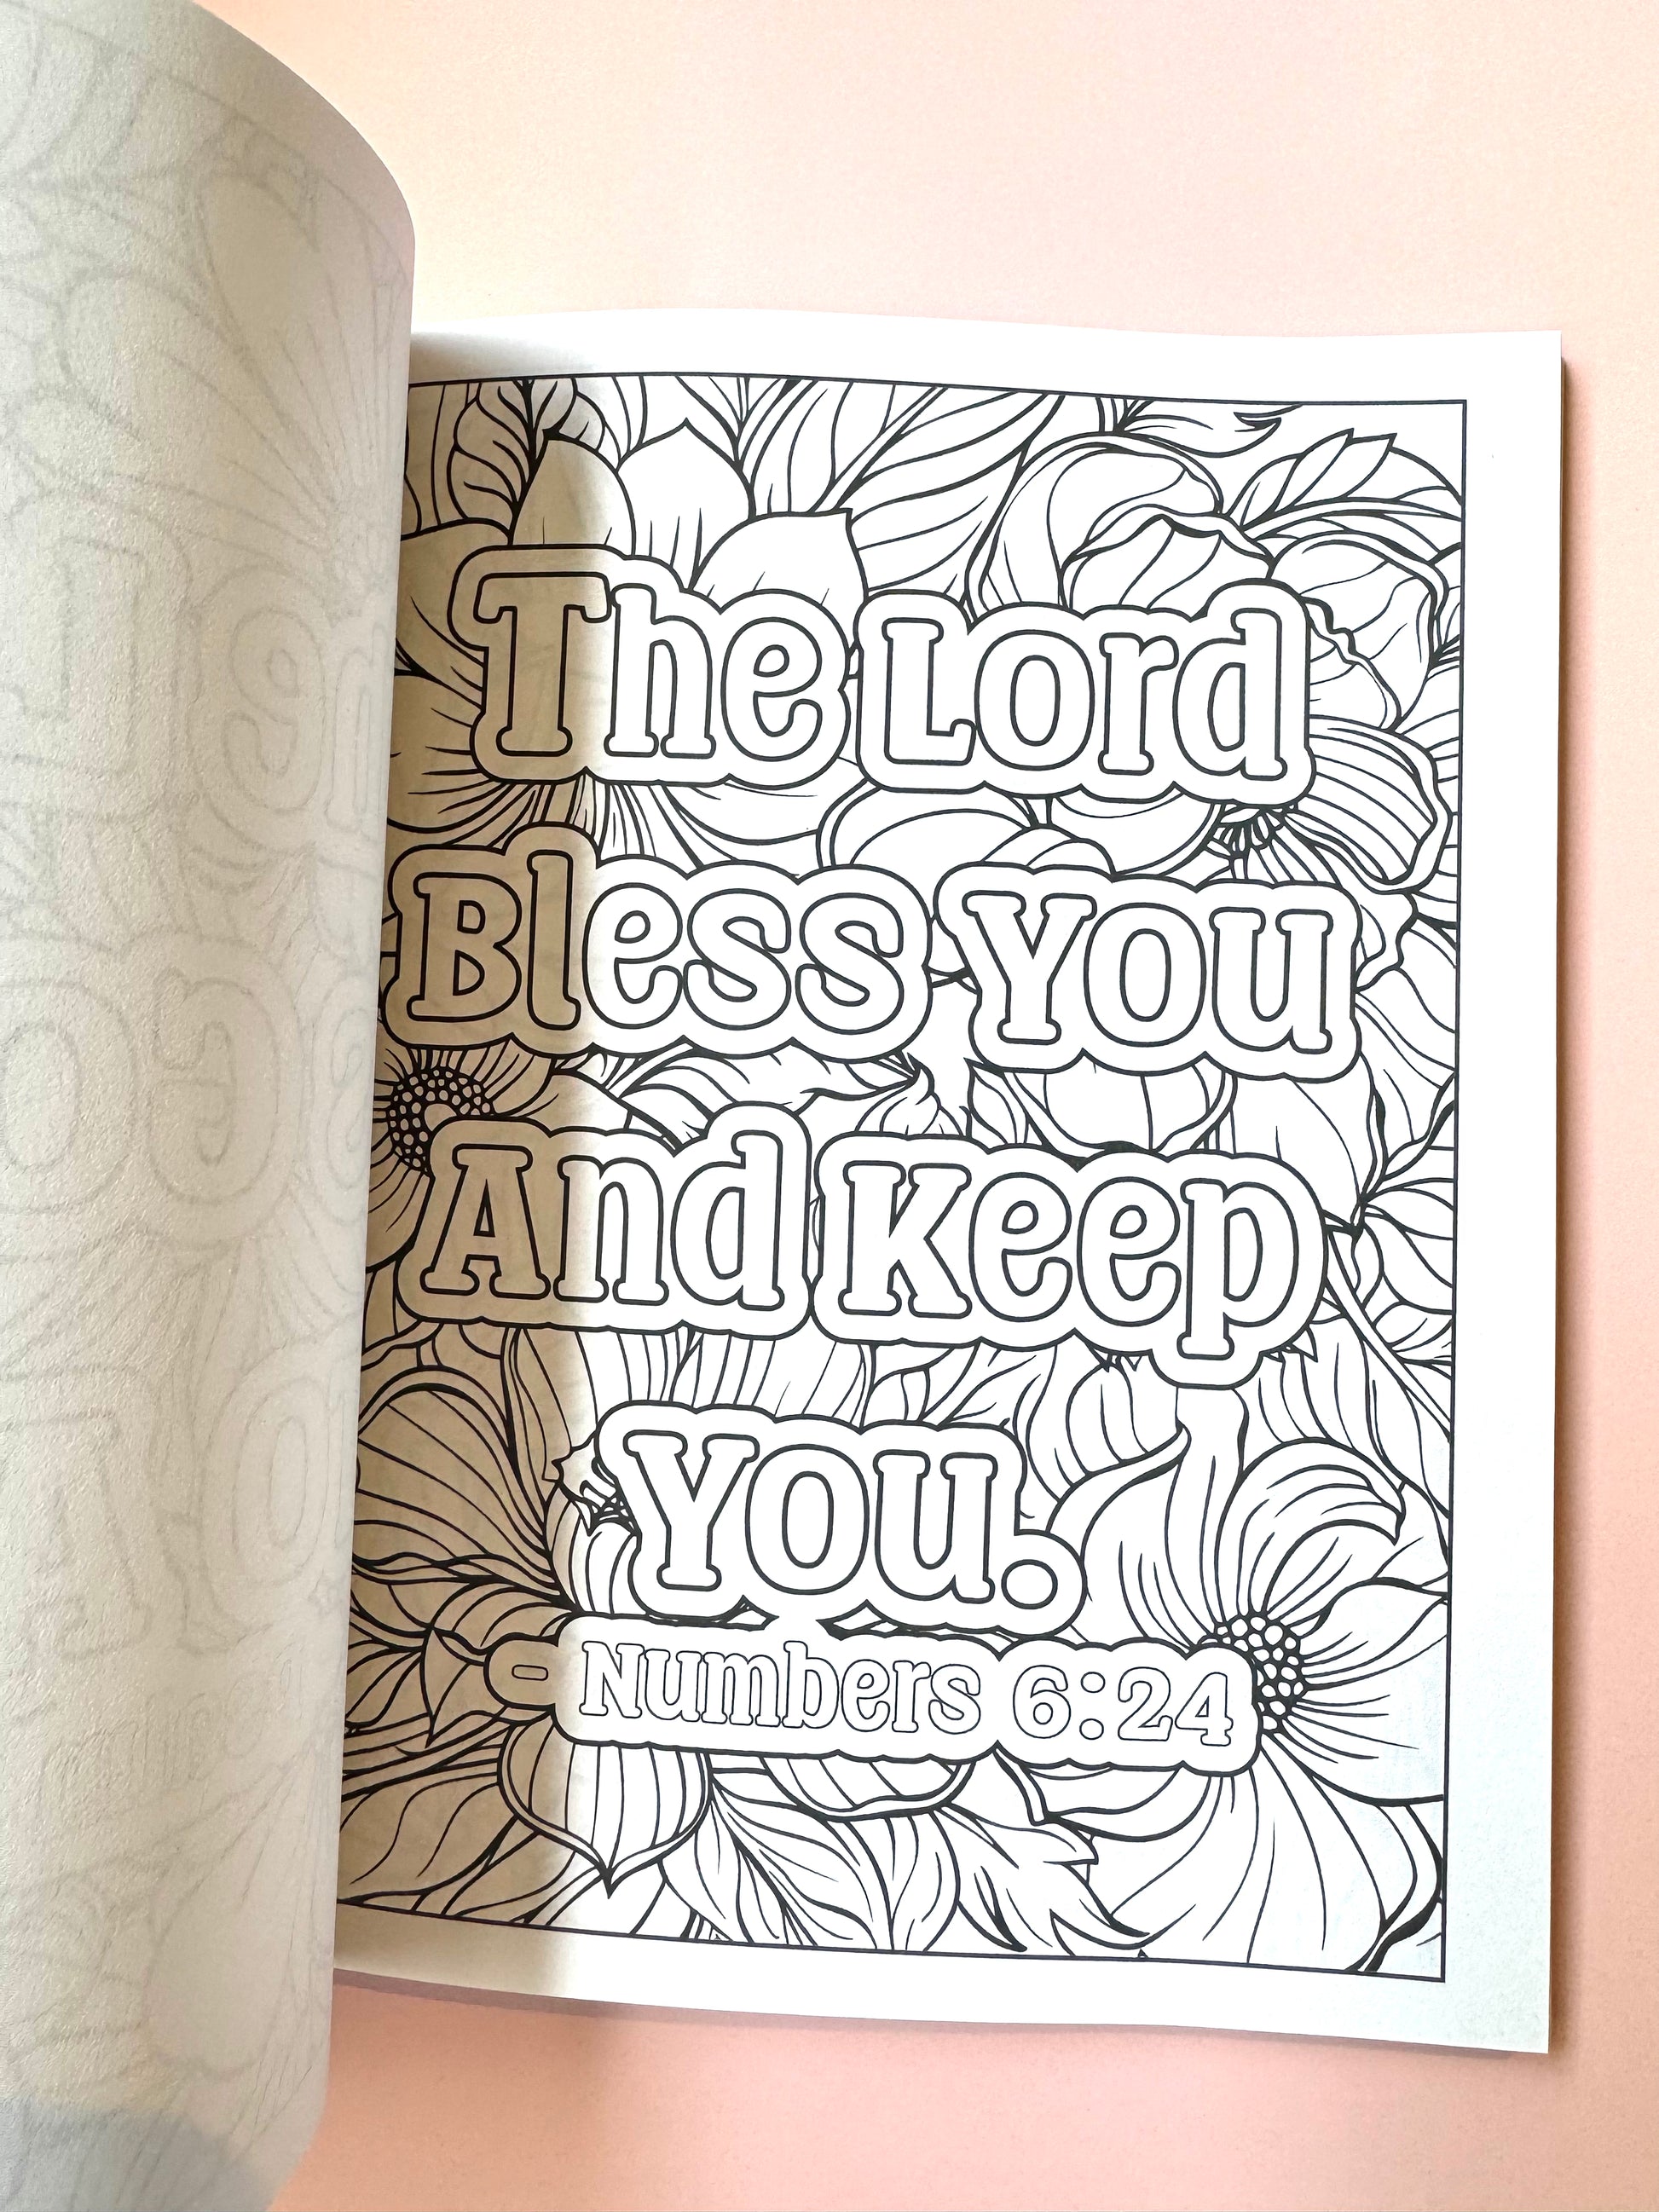 The Lord
Bless You
And Keep
You.
- Numbers 6:24